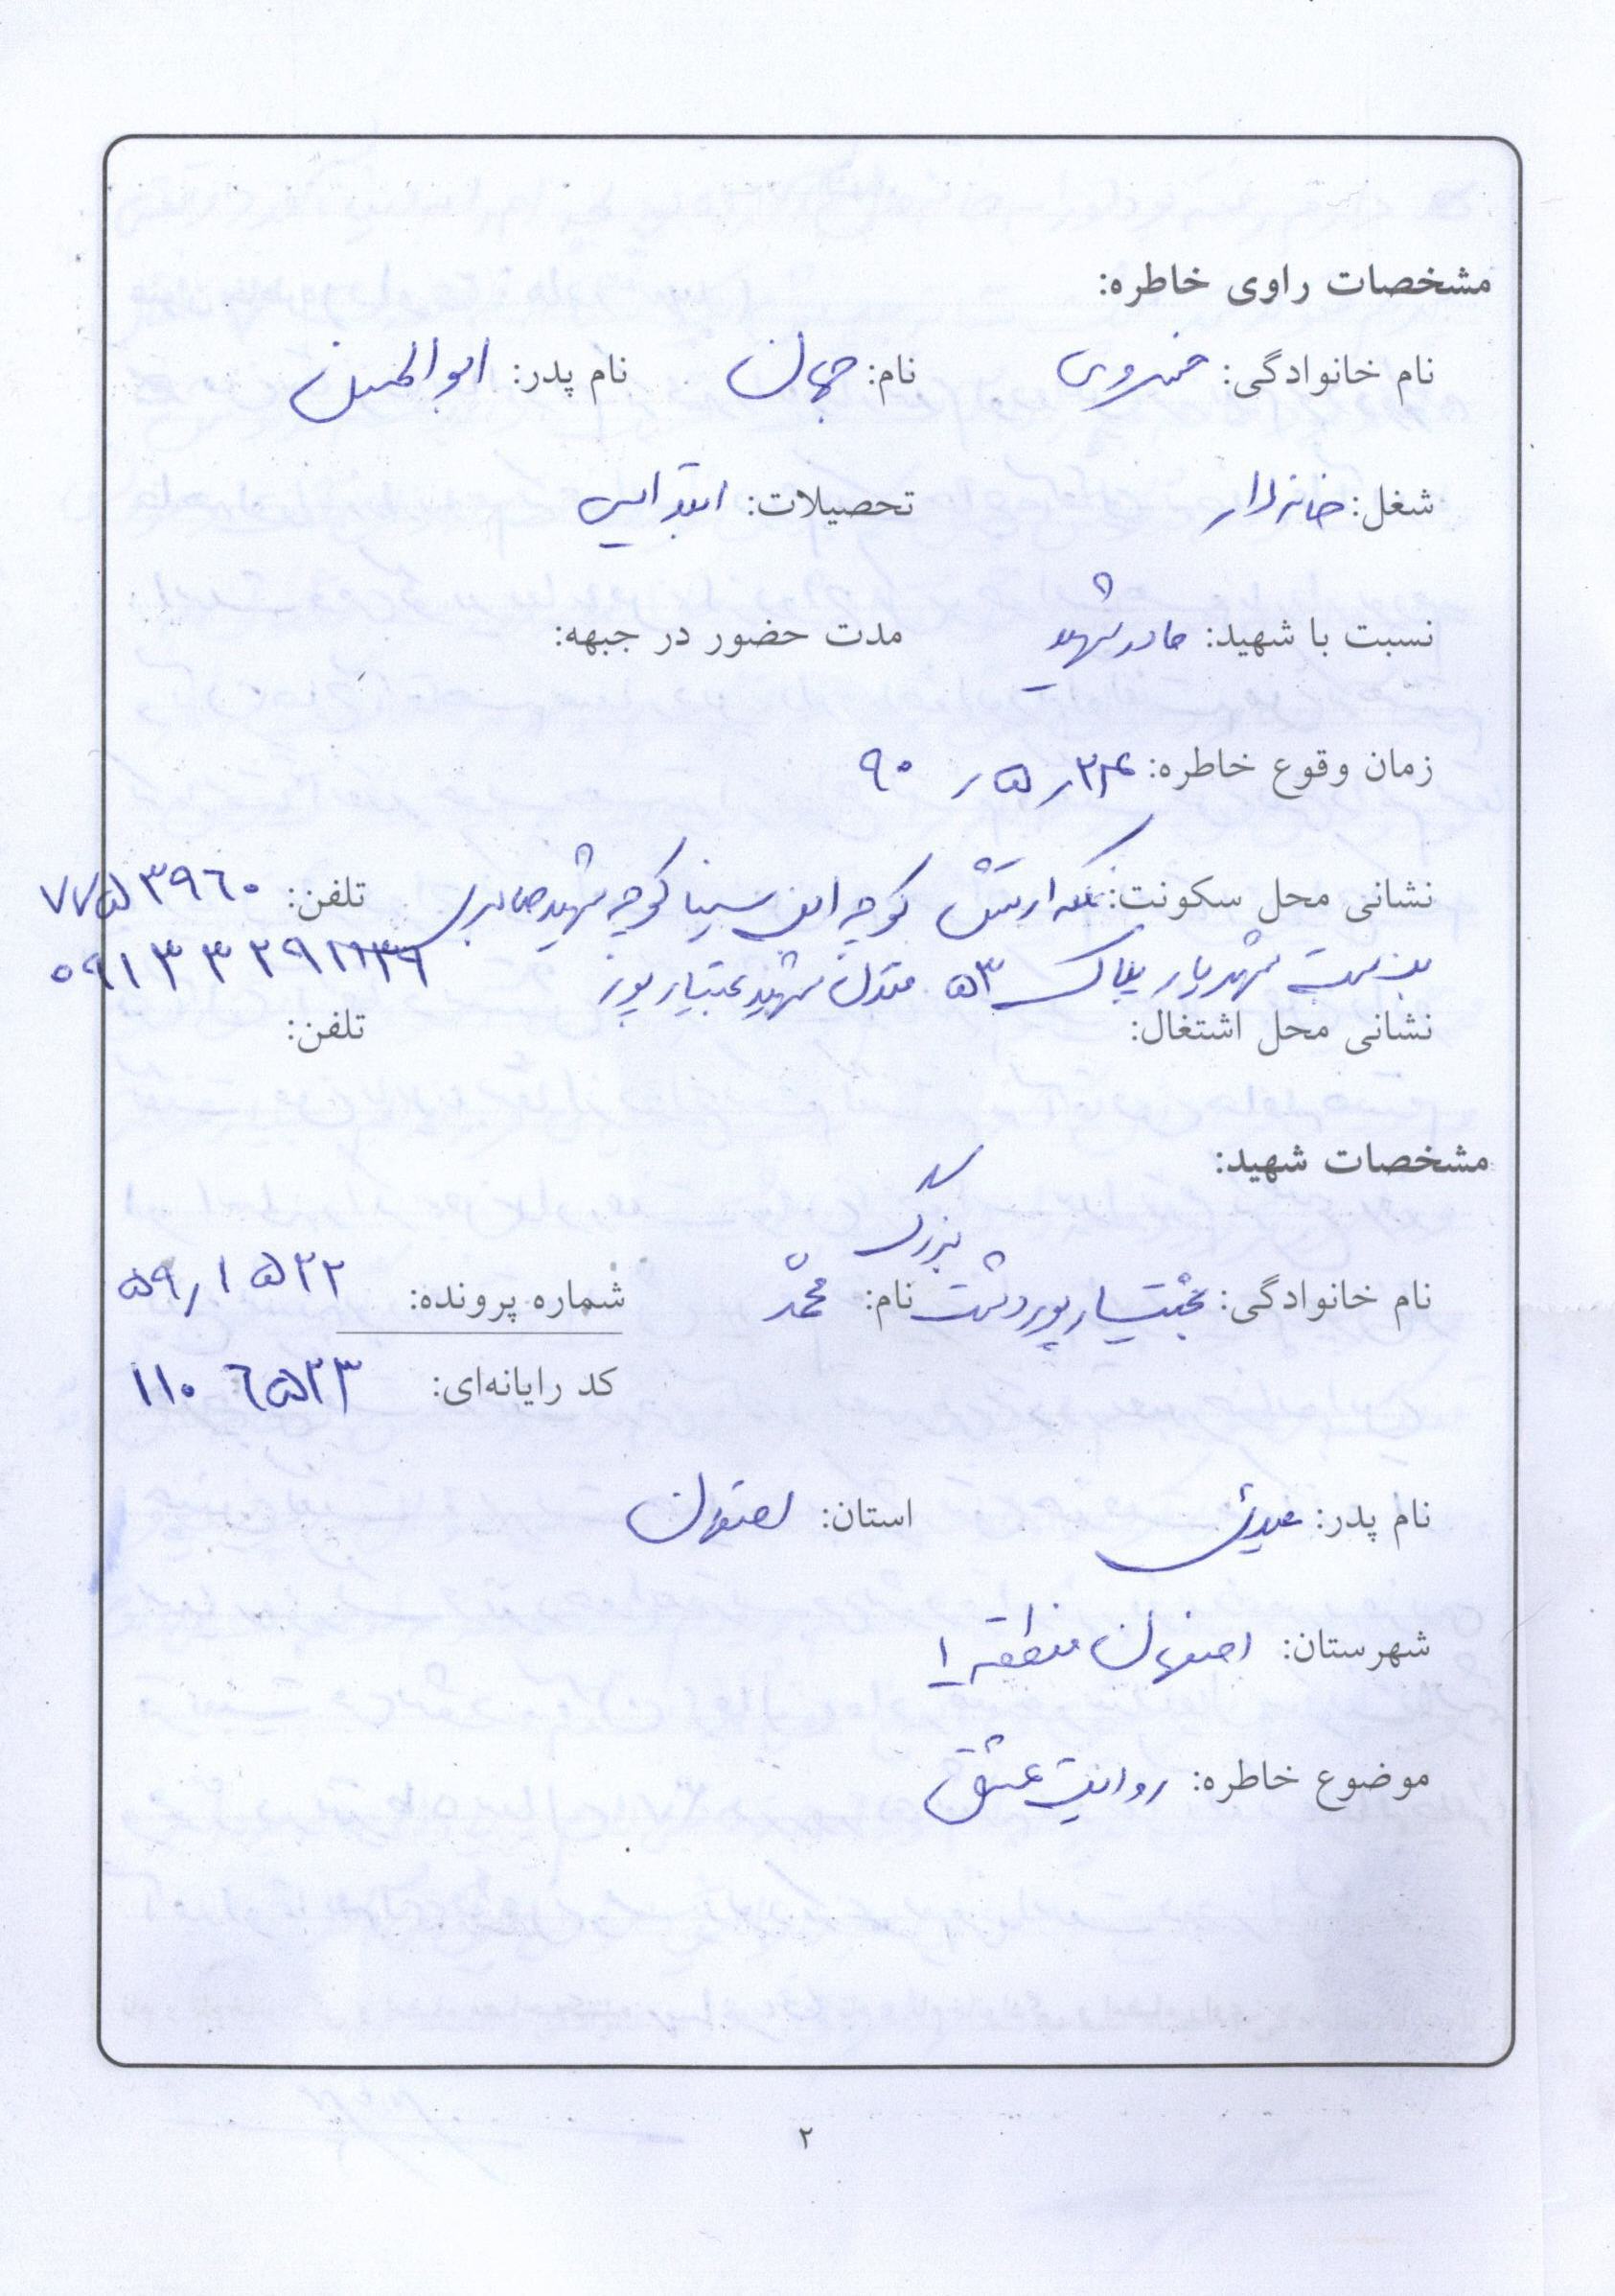 مشخصات راوی خاطره:
نام خانوادگی: خسروی نام: جهان نام پدر: ابوالحسن
شغل: خانه دار تحصیلات: ابتدایی
نسبت با شهید: مادر شهید مدت حضور در جبهه:
زمان وقوع خاطره: ۹۰ / ۵ /
نشانی محل سکونت: فلکه ارتش کوچه ابن سینا کوچه شهید صابری تلفن: ۷۷۵۳۹۶۰
بن بست شهریار پلاک ۵۳ منزل شهید بختیارپور
نشانی محل اشتغال: تلفن:
مشخصات شهید:
بزرگ
نام خانوادگی: بختیارپور دشت نام: محمد شماره پرونده: ۵۹/۱۵۲۲
کد رایانه‌ای: ۱۱۰۶۵۲۳
نام پدر: عیدی استان: اصفهان
شهرستان: اصفهان منطقه ۱
موضوع خاطره: روایت عشق
۲